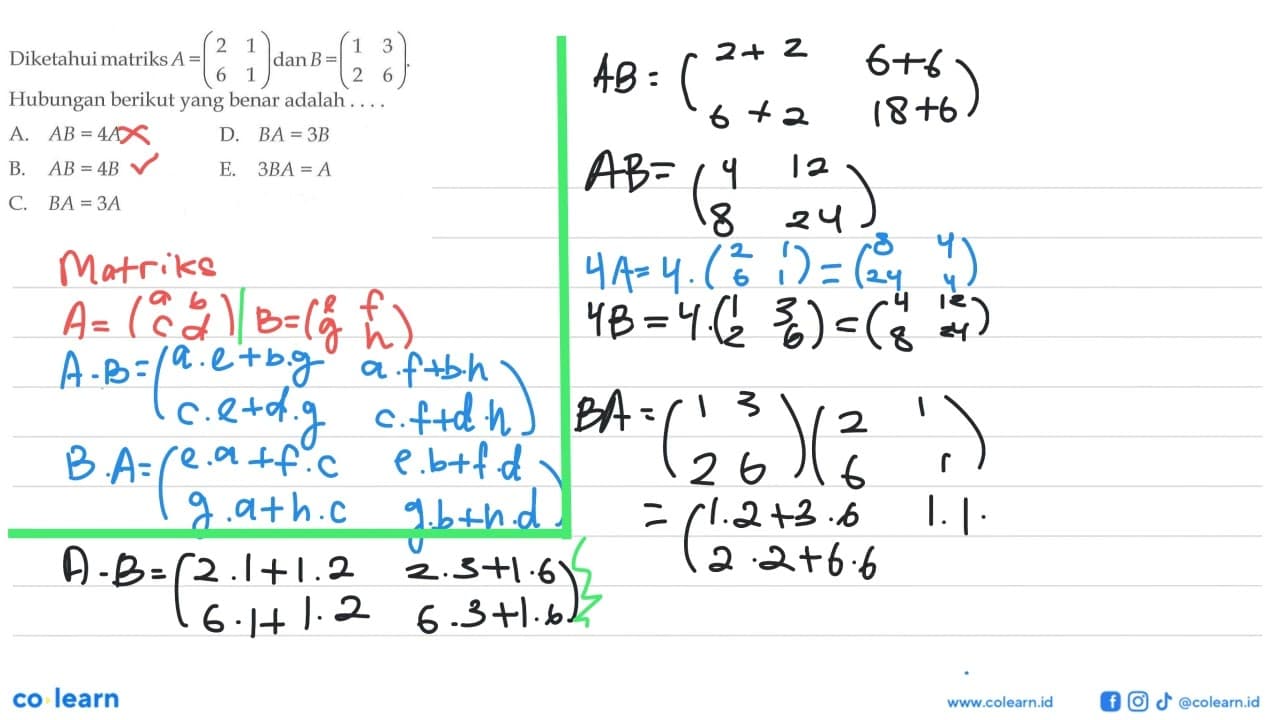 Diketahui matriks A = (2 1 6 1) dan B = (1 3 2 6).
Hubungan berikut yang benar adalah . . . .
A. AB = 4A ✗ D. BA = 3B
B. AB = 4B ✓ E. 3BA = A
C. BA = 3A
Matriks
A = (a b c d) | B = (e f g h)
A.B = (a.e+b.g a.f+b.h
c.e+d.g c.f+d.h)
B.A = (e.a+f.c e.b+f.d
g.a+h.c g.b+h.d)
A.B = (2.1+1.2 2.3+1.6
6.1+1.2 6.3+1.6)
AB = (2+2 6+6
6+2 18+6)
AB = (4 12
8 24)
4A = 4.(2 1 6 1) = (8 4 24 4)
4B = 4.(1 3 2 6) = (4 12 8 24)
BA = (1 3 2 6)(2 1 6 1)
= (1.2+3.6 1.1.
2.2+6.6
co learn
www.colearn.id @colearn.id